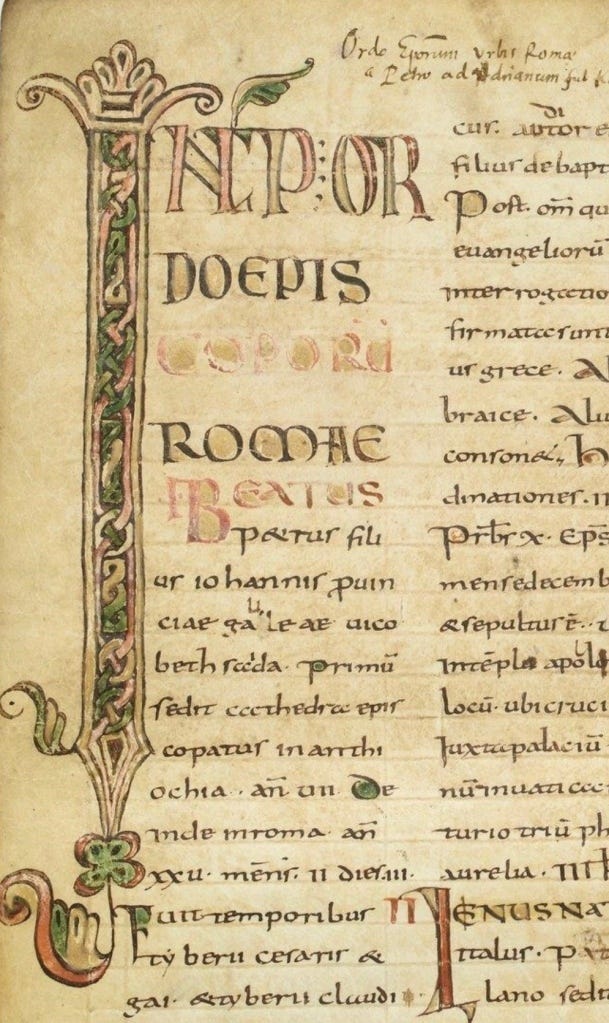 Ordo Ep̄orum urbis Romæ
a Petro ad Adrianum
INCP: OR
DO EPIS
COPORU
ROMAE
I BEATUS
p&rus fili
us iohannis ꝓuin
ciae galileae uico
bethsaida. primū
sedit cathedra epis
copatus in anthi
ochia. an̄ uii. De
inde in roma. an̄
xxu. mens̄. ii dies. iii.
Fuit temporibus
tyberii cesaris &
gai. & tyberii claudi
cus. auditor e
filius de bapt
Post. om̄ qu
euangeliorū
interrogatio
firmatae sunt
us grece. Al
braice. Alu
conson&
dinationes. ii
Pr̄br x. Ep̄s
mense decemb
& sepultus ē.
intēplo apoli
locū. ubi cruci
Iuxta palaciū
nū in uatica
turio triū ph
aurelia. III k
II LENUS NA
Italus. pat
lano sedit